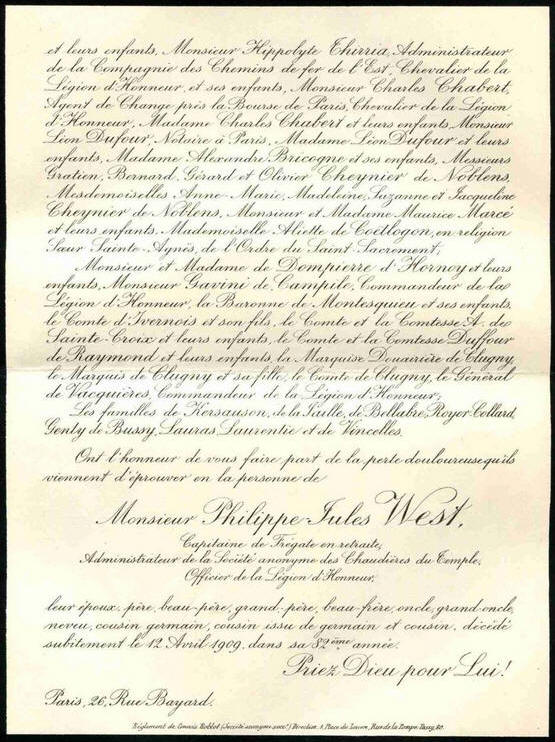 et leurs enfants, Monsieur Hippolyte Thirria, Administrateur
de la Compagnie des Chemins de fer de l'Est, Chevalier de la
Légion d'Honneur, et ses enfants, Monsieur Charles Chabert,
Agent de Change près la Bourse de Paris, Chevalier de la Légion
d'Honneur, Madame Charles Chabert et leurs enfants, Monsieur
Léon Dufour, Notaire à Paris, Madame Léon Dufour et leurs
enfants, Madame Alexandre Bricogne et ses enfants, Messieurs
Gratien, Bernard, Gérard et Olivier Cheynier de Noblens,
Mesdemoiselles Anne-Marie, Madeleine, Suzanne et Jacqueline
Cheynier de Noblens, Monsieur et Madame Maurice Marcé
et leurs enfants, Mademoiselle Aliette de Coëtlogon, en religion
Sœur Sainte-Agnès, de l'Ordre du Saint-Sacrement;
Monsieur et Madame de Dompierre d'Hornoy et leurs
enfants, Monsieur Gavini de Campile, Commandeur de la
Légion d'Honneur, la Baronne de Montesquieu et ses enfants,
le Comte d'Ivernois et son fils, le Comte et la Comtesse A. de
Sainte-Croix et leurs enfants, le Comte et la Comtesse Duffour
de Raymond et leurs enfants, la Marquise Douairière de Clugny,
le Marquis de Clugny et sa fille, le Comte de Clugny, le Général
de Vacquières, Commandeur de la Légion d'Honneur;
Les familles de Kersauson, de la Tuille, de Bellabre, Royer-Collard,
Genty de Bussy, Lauras, Laurentie et de Vincelles,
Ont l'honneur de vous faire part de la perte douloureuse qu'ils
viennent d'éprouver en la personne de
Monsieur Philippe Jules West,
Capitaine de Frégate en retraite,
Administrateur de la Société anonyme des Chaudières du Temple,
Officier de la Légion d'Honneur,
leur époux, père, beau-père, grand-père, beau-frère, oncle, grand-oncle,
neveu, cousin germain, cousin issu de germain et cousin, décédé
subitement le 12 Avril 1909, dans sa 82ème année.
Priez Dieu pour Lui!
Paris, 26, Rue Bayard.
Règlement de Convois Roblot (Société anonyme succr) Direction